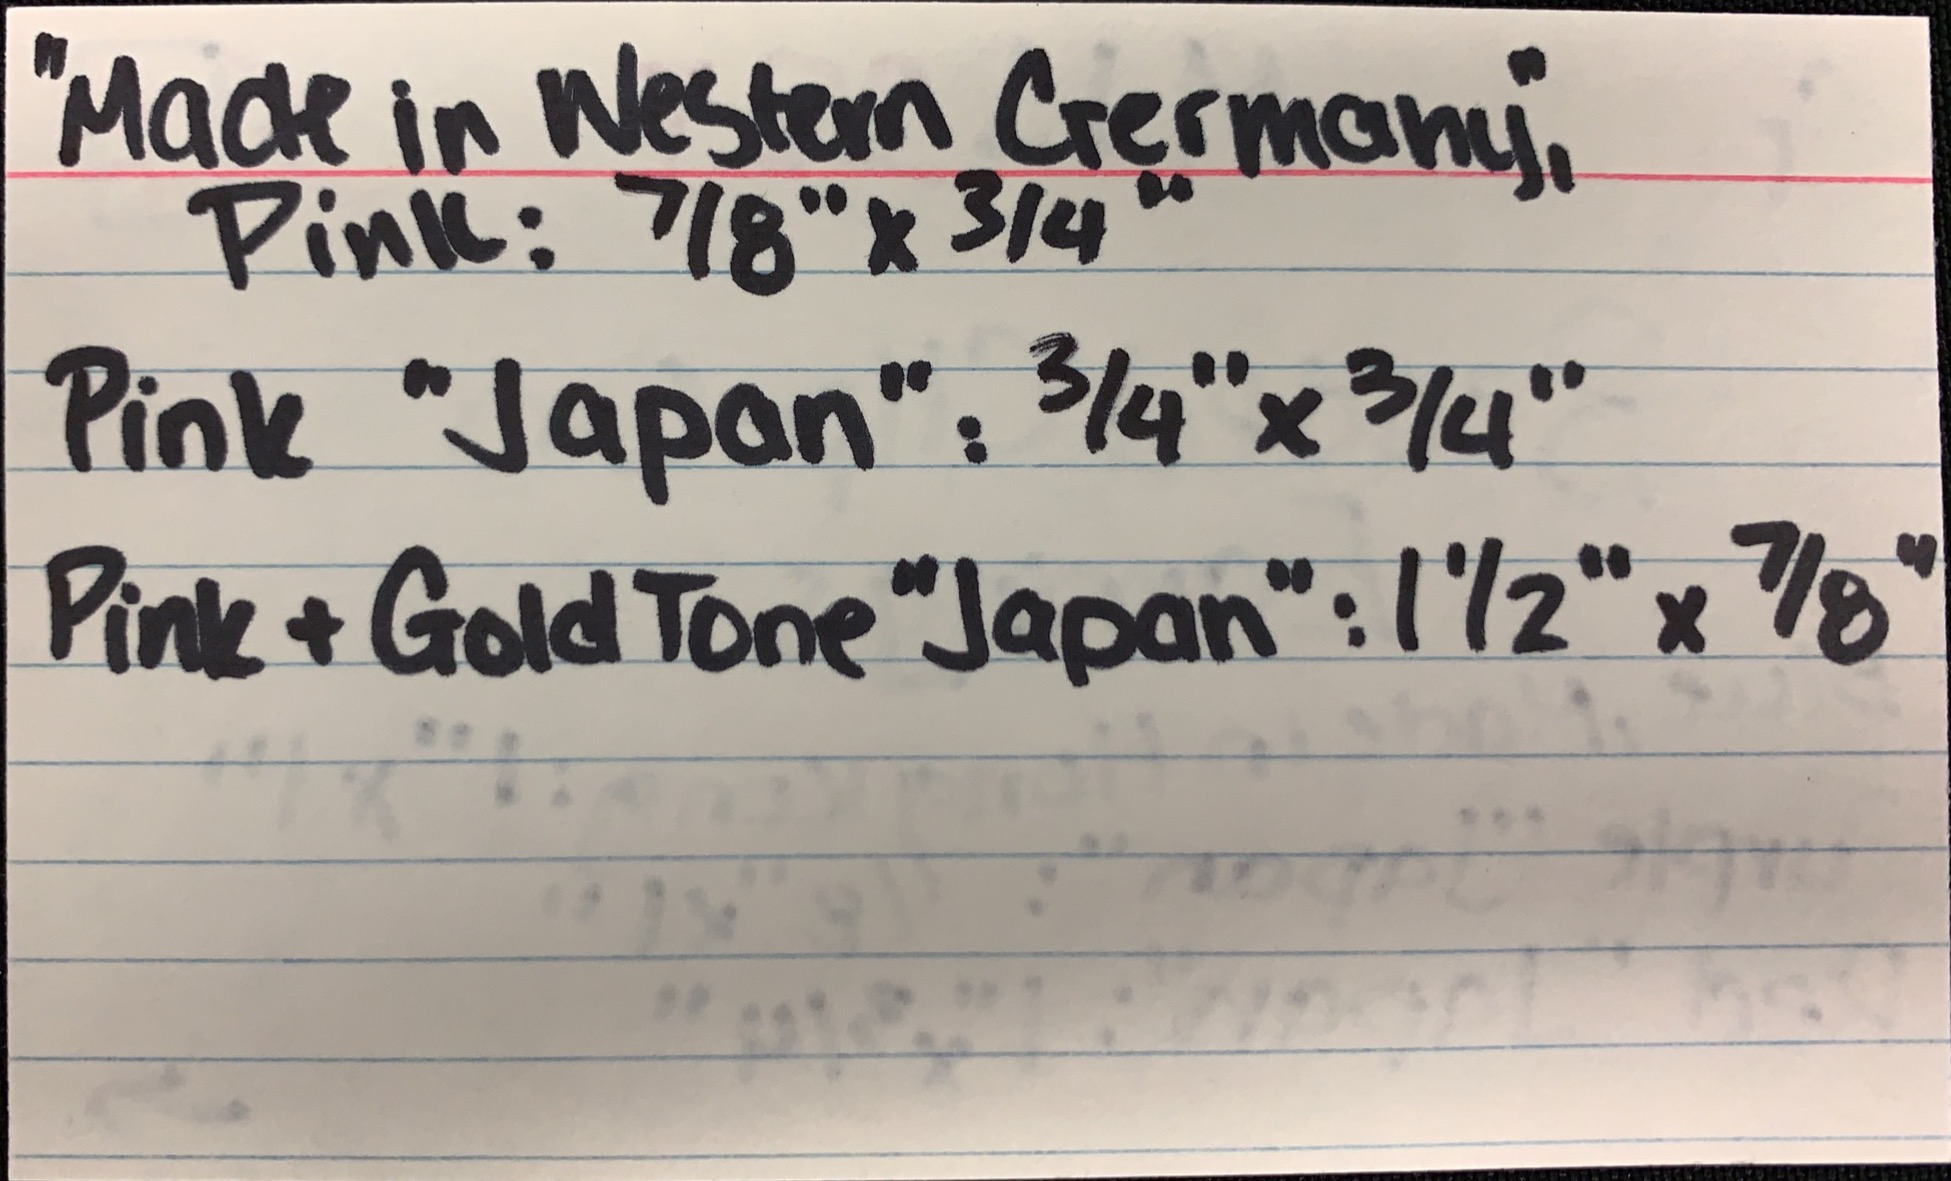 "Made in Western Germany",
Pink: 7/8" x 3/4"
Pink "Japan": 3/4" x 3/4"
Pink + Gold Tone "Japan": 1 1/2" x 7/8"